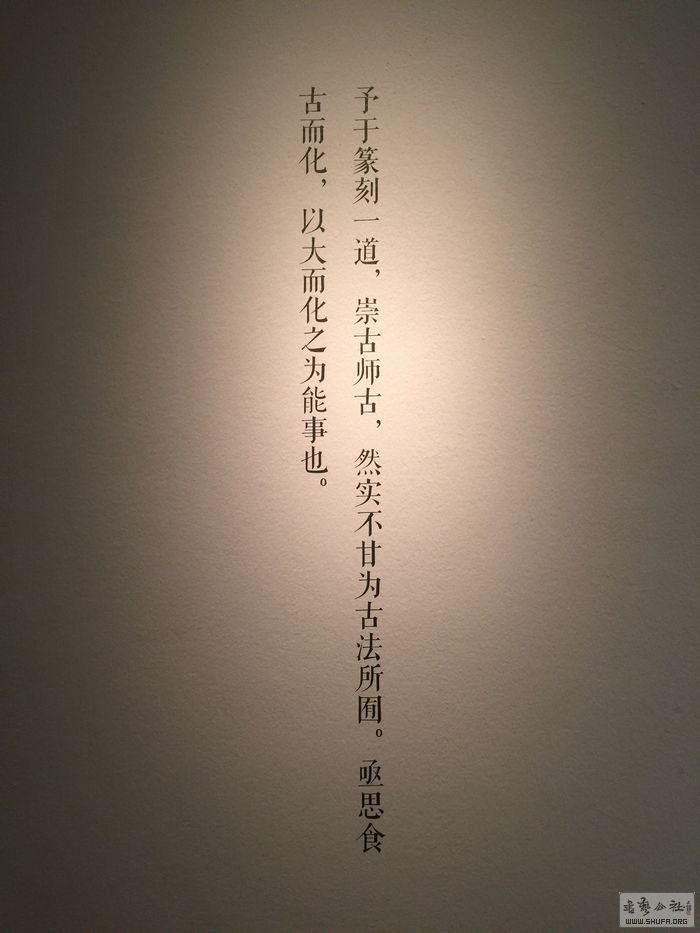 予于篆刻一道，崇古师古，然实不甘为古法所囿。亟思食
古而化，以大而化之为能事也。
WWW.SHUFA.ORG